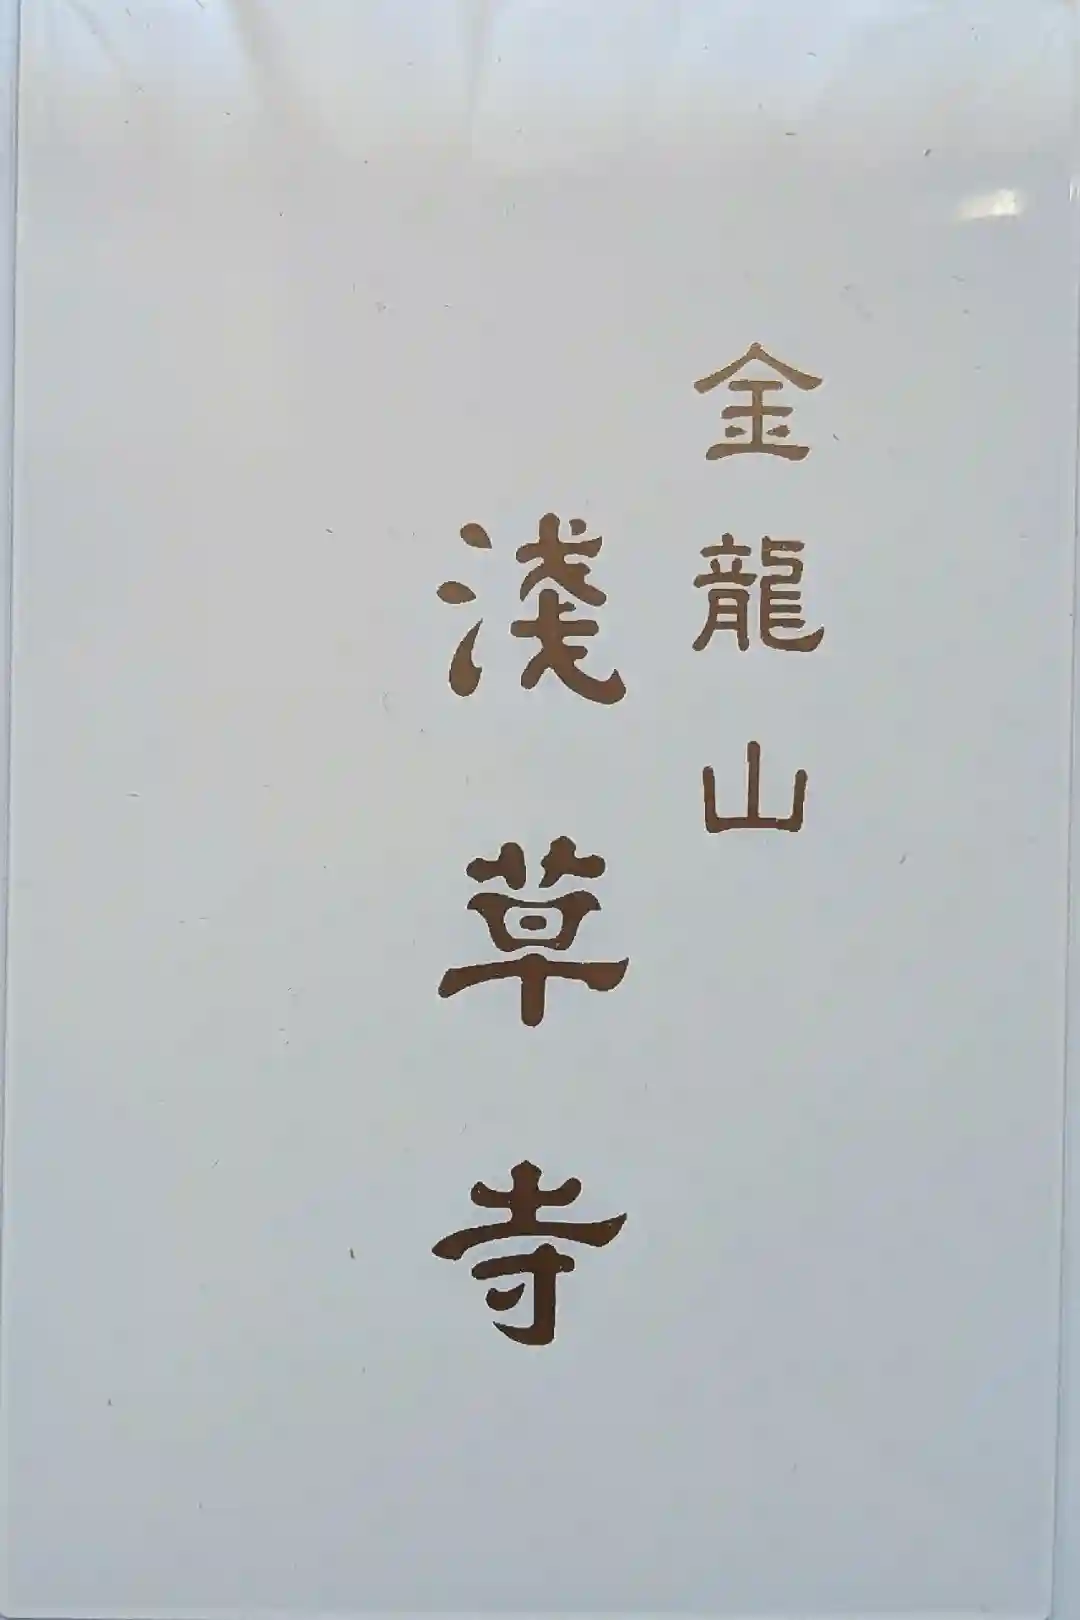 金龍山
淺草寺